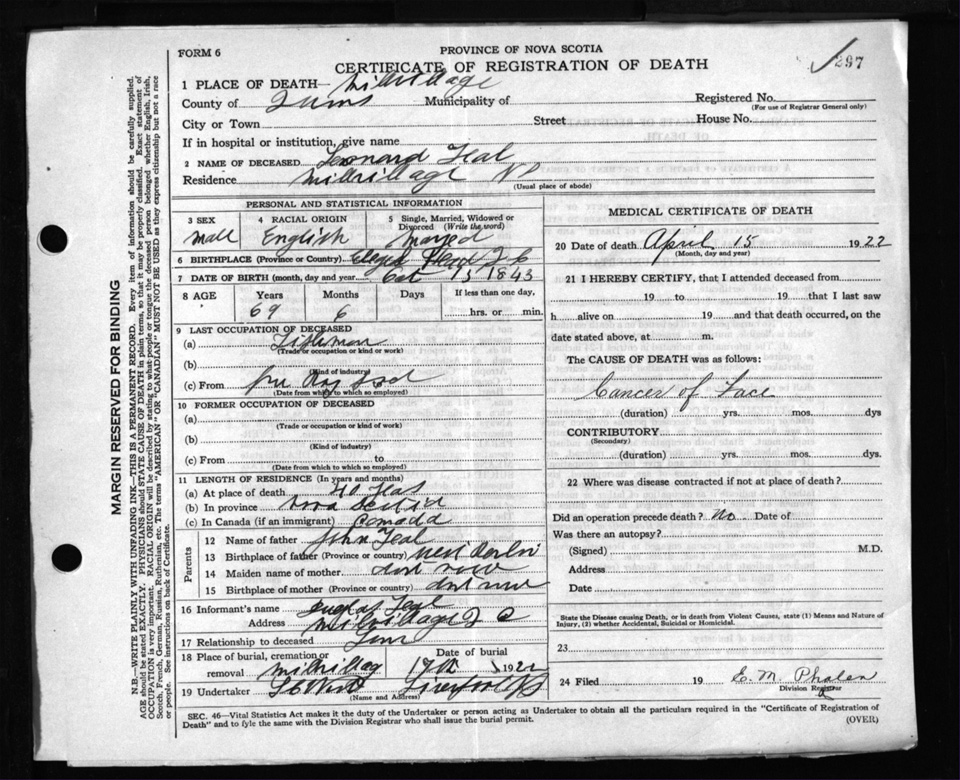 FORM 6
PROVINCE OF NOVA SCOTIA
CERTIFICATE OF REGISTRATION OF DEATH
297
1 PLACE OF DEATH Millvillage
County of Municipality of Registered No.
(For use of Registrar General only)
City or Town Street House No.
If in hospital or institution, give name
2 NAME OF DECEASED Leonard Teal
Residence Millvillage NS
(Usual place of abode)
PERSONAL AND STATISTICAL INFORMATION
3 SEX 4 RACIAL ORIGIN 5 Single, Married, Widowed or Divorced (Write the word)
Mall English
6 BIRTHPLACE (Province or Country)
7 DATE OF BIRTH (month, day and year) Oct 15 1843
8 AGE Years Months Days If less than one day,
69 6 hrs. or min.
9 LAST OCCUPATION OF DECEASED
(a) Fisherman
(Trade or occupation or kind or work)
(b)
(Kind of industry)
(c) From
(Date from which to which so employed)
10 FORMER OCCUPATION OF DECEASED
(a)
(Trade or occupation or kind of work)
(b)
(Kind of industry)
(c) From to
(Date from to which so employed)
11 LENGTH OF RESIDENCE (In years and months)
(a) At place of death 40
(b) In province nova
(c) In Canada (if an immigrant) Comada
Parents
12 Name of father John Teal
13 Birthplace of father (Province or country) west
14 Maiden name of mother dont now
15 Birthplace of mother (Province or country) dont now
16 Informant's name Teal
Address Millvillage
17 Relationship to deceased
18 Place of burial, cremation or removal Date of burial
17th 1922
19 Undertaker Liverpool NS
(Name and Address)
MEDICAL CERTIFICATE OF DEATH
20 Date of death April 15 1922
(Month, day and year)
21 I HEREBY CERTIFY, that I attended deceased from
19 to 19 that I last saw
h alive on 19 and that death occurred, on the
date stated above, at m.
The CAUSE OF DEATH was as follows:
Cancer of Face
(duration) yrs. mos. dys
CONTRIBUTORY
(Secondary)
(duration) yrs. mos. dys.
22 Where was disease contracted if not at place of death?
Did an operation precede death? No Date of
Was there an autopsy?
(Signed) M.D.
Address
Date
State the Disease causing Death, or in death from Violent Causes, state (1) Means and Nature of
Injury, (2) whether Accidental, Suicidal or Homicidal.
23
24 Filed 19 C. M. Phalen
Division Registrar
SEC. 46—Vital Statistics Act makes it the duty of the Undertaker or person acting as Undertaker to obtain all the particulars required in the "Certificate of Registration of
Death" and to fyle the same with the Division Registrar who shall issue the burial permit.
(OVER)
MARGIN RESERVED FOR BINDING
N.B.—WRITE PLAINLY WITH UNFADING INK—THIS IS A PERMANENT RECORD. Every item of information should be carefully supplied.
AGE should be stated EXACTLY. PHYSICIANS should STATE CAUSE OF DEATH in plain terms, so that it may be properly classified. Exact statement of
OCCUPATION is very important. RACIAL ORIGIN will be described by stating to what people or tongue the deceased person belonged whether English, Irish,
Scotch, French, German, Russian, Ruthenian, etc. The terms "AMERICAN" OR "CANADIAN" MUST NOT BE USED as they express citizenship but not a race
or people. See instructions on back of Certificate.